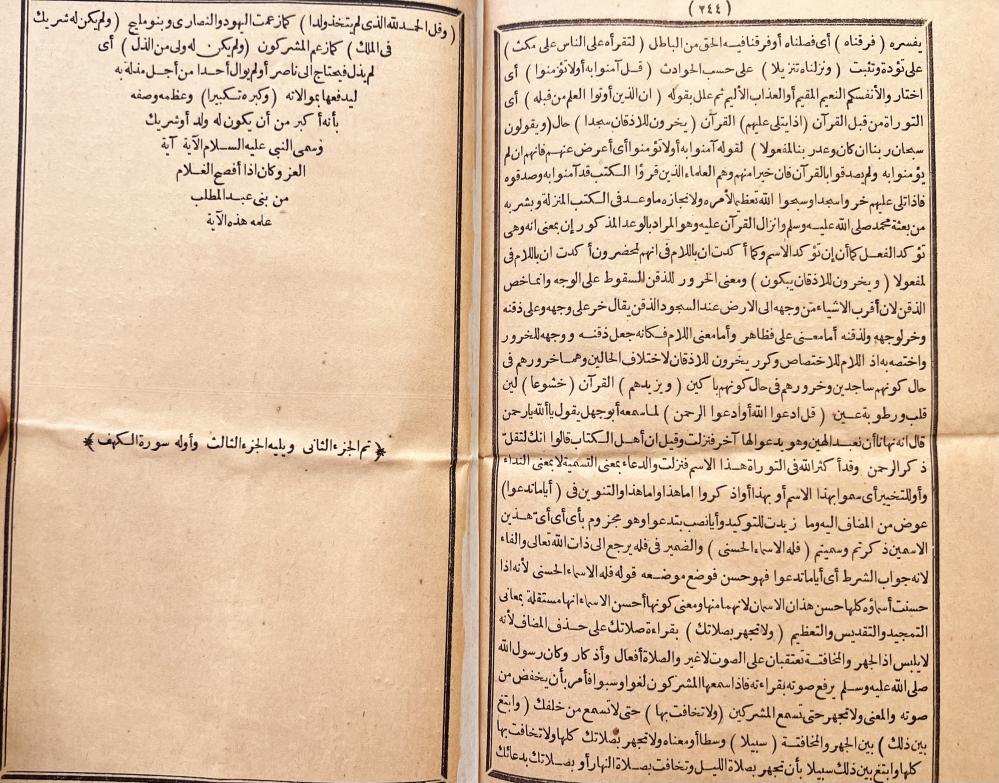 (٢٤٤)
يفسره (فرقناه) أى فصلناه أو فرقنا فيه الحق من الباطل (لتقرأه على الناس على مكث)
على تؤدة وتثبت (ونزلناه تنزيلا) على حسب الحوادث (قل آمنوا به أولا تؤمنوا) أى
اختاروا لأنفسكم النعيم المقيم أو العذاب الأليم ثم علل بقوله (ان الذين أوتوا العلم من قبله) أى
التوراة من قبل القرآن (اذا يتلى عليهم) القرآن (يخرون للاذقان سجدا) حال (ويقولون
سبحان ربنا ان كان وعد ربنا لمفعولا) لقوله آمنوا به أولا تؤمنوا أى أعرض عنهم فانهم ان لم
يؤمنوا به ولم يصدقوا بالقرآن فان خيرا منهم وهم العلماء الذين قرؤا الكتب قد آمنوا به وصدقوه
فاذا تلى عليهم خروا سجدا وسبحوا الله تعظيما لأمره ولانجازه ما وعد فى الكتب المنزلة وبشر به
من بعثة محمد صلى الله عليه وسلم وانزال القرآن عليه وهو المراد بالوعد المذكور إن بمعنى انه وهى
تؤكد الفعل كما أن إن تؤكد الاسم وكما أكدت ان باللام فى انهم لمحضرون أكدت ان باللام فى
لمفعولا (ويخرون للاذقان يبكون) ومعنى الخرور للذقن السقوط على الوجه وانما خص
الذقن لان أقرب الاشياء من وجهه الى الارض عند السجود الذقن يقال خر على وجهه وعلى ذقنه
وخر لوجهه ولذقنه أما معنى على فظاهر وأما معنى اللام فكانه جعل ذقنه ووجهه للخرور
واختصه به اذ اللام للاختصاص وكرر يخرون للاذقان لاختلاف الحالين وهما خرورهم فى
حال كونهم ساجدين وخرورهم فى حال كونهم باكين (ويزيدهم) القرآن (خشوعا) لين
قلب ورطوبة عين (قل ادعوا الله أو ادعوا الرحمن) لما سمعه أبو جهل يقول يا ألله يا رحمن
قال انه نهانا أن نعبد الهين وهو يدعو الها آخر فنزلت وقيل ان أهل الكتاب قالوا انك لتقل
ذكر الرحمن وقد أكثر الله فى التوراة هذا الاسم فنزلت والدعاء بمعنى التسمية لا بمعنى النداء
وأو للتخيير أى سموا بهذا الاسم أو بهذا أو اذكروا اما هذا واما هذا والتنوين فى (أياما تدعوا)
عوض من المضاف اليه وما زيدت للتوكيد وأيا نصب بتدعوا وهو مجزوم بأى أى أىّ هذين
الاسمين ذكرتم وسميتم (فله الاسماء الحسنى) والضمير فى فله يرجع الى ذات الله تعالى والفاء
لانه جواب الشرط أى أياما تدعوا فهو حسن فوضع موضعه قوله فله الاسماء الحسنى لأنه اذا
حسنت أسماؤه كلها حسن هذان الاسمان لانهما منها ومعنى كونها أحسن الاسماء انها مستقلة بمعانى
التمجيد والتقديس والتعظيم (ولا تجهر بصلاتك) بقراءة صلاتك على حذف المضاف لأنه
لا يلبس اذ الجهر والمخافتة تعتقبان على الصوت لا غير والصلاة أفعال وأذكار وكان رسول الله
صلى الله عليه وسلم يرفع صوته بقراءته فاذا سمعها المشركون لغوا وسبوا فأمر بأن يخفض من
صوته والمعنى ولا تجهر حتى تسمع المشركين (ولا تخافت بها) حتى لا تسمع من خلفك (وابتغ
بين ذلك) بين الجهر والمخافتة (سبيلا) وسطا أو معناه ولا تجهر بصلاتك كلها ولا تخافت بها
كلها وابتغ بين ذلك سبيلا بأن تجهر بصلاة الليل وتخافت بصلاة النهار أو بصلاتك بدعائك
(وقل الحمد لله الذى لم يتخذ ولدا) كما زعمت اليهود والنصارى وبنو مليح (ولم يكن له شريك
فى الملك) كما زعم المشركون (ولم يكن له ولى من الذل) أى
لم يذل فيحتاج الى ناصر أو لم يوال أحدا من أجل مذلة به
ليدفعها بموالاته (وكبره تكبيرا) وعظمه وصفه
بأنه أكبر من أن يكون له ولد أو شريك
وسمى النبى عليه السلام الآية آية
العز وكان اذا أفصح الغلام
من بنى عبد المطلب
علمه هذه الآية
﴿تم الجزء الثانى ويليه الجزء الثالث وأوله سورة الكهف﴾